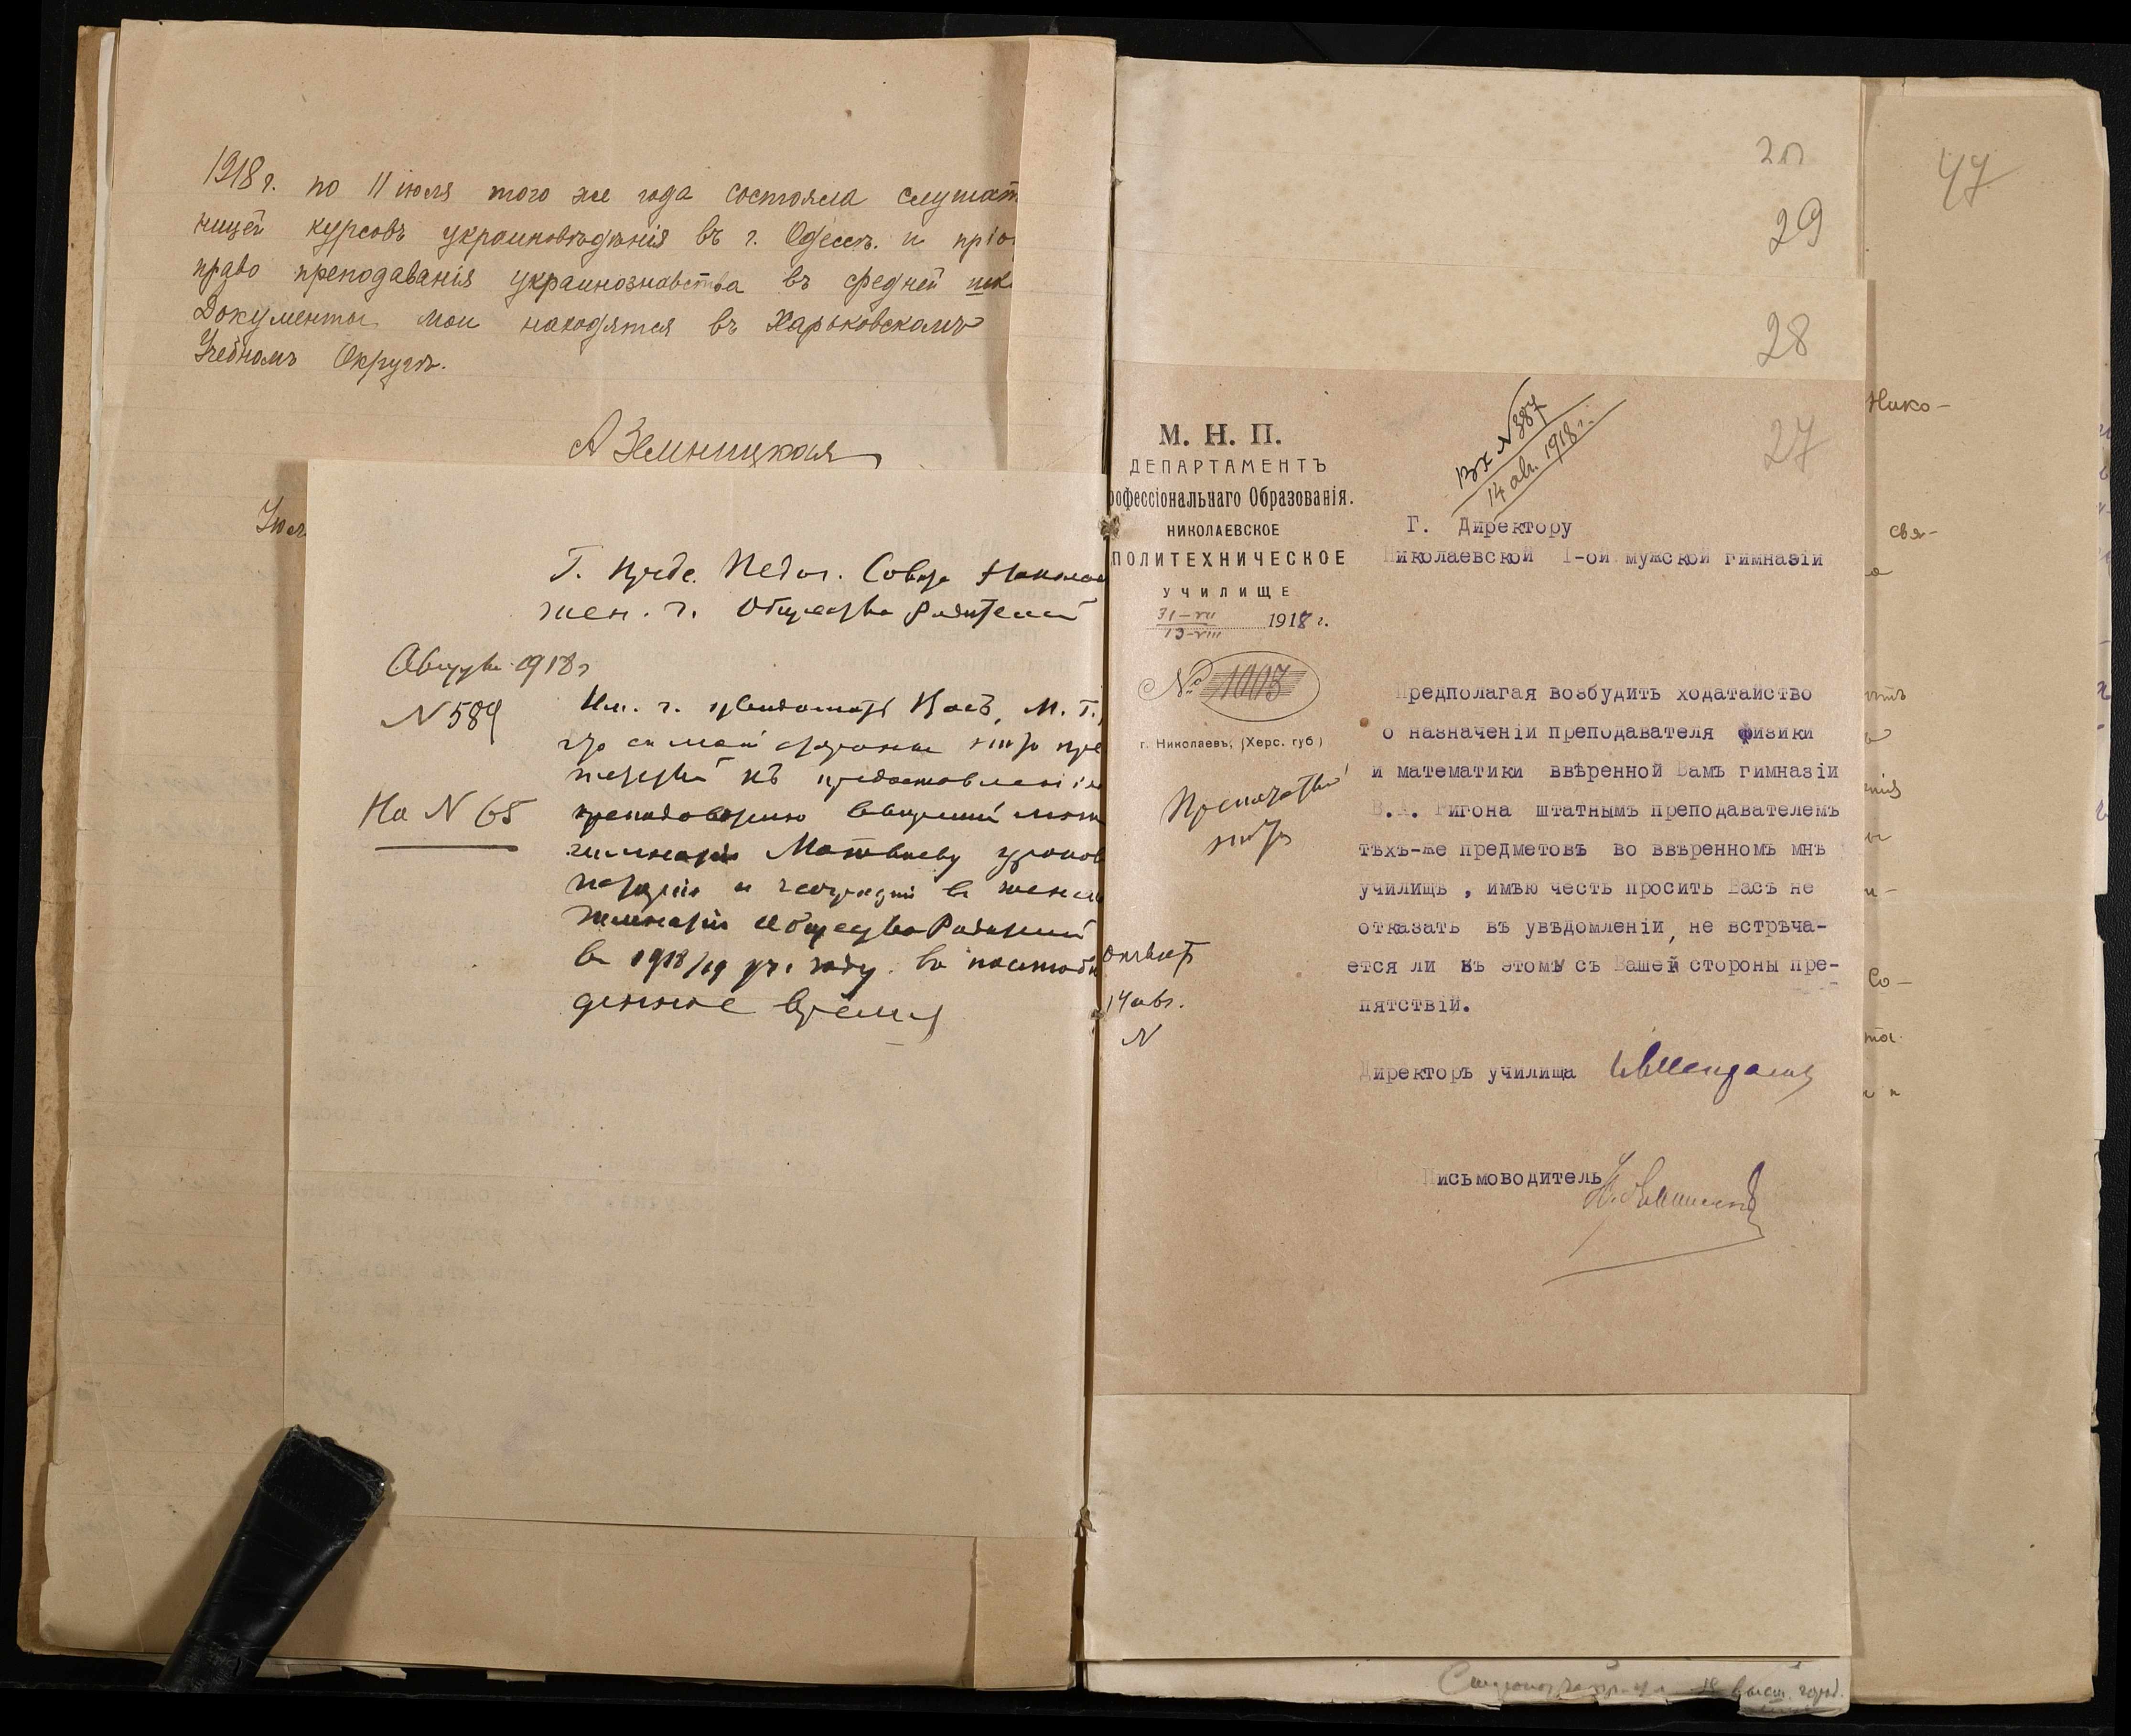 1918 г. по 11 июля того же года состояла слушат
ницей курсовъ украиновѣдѣнія въ г. Одессѣ. и прiо
право преподаванія украинознавства въ средней шк
Документы мои находятся въ Харьковскомъ
Учебномъ Округѣ.
А Земницкая
Г. Предс. Педаг. Совѣта Николаев
жен. г. Общества Родителей
Августа 1918 г
N 589
На N 65
Им. ч. увѣдомить Васъ, М. Г.,
что съ моей стороны нѣтъ пре
пятствій къ предоставленію
преподователю ввѣренной мнѣ
гимназіи Матвѣеву уроков
исторіи и географіи въ женск
гимназіи Общества Родителей
въ 1918/19 уч. году. во послеобѣ
денное время
20
29
28
27
47
М. Н. П.
ДЕПАРТАМЕНТЪ
рофессіональнаго Образованія.
НИКОЛАЕВСКОЕ
ПОЛИТЕХНИЧЕСКОЕ
УЧИЛИЩЕ
31-VII
13-VIII 1918 г.
№ 1007
г. Николаевъ, (Херс. губ)
Вх N 387
14 авг. 1918 г.
Г. Директору
Николаевской 1-ой мужской гимназіи
Препятствій
нѣтъ
отвѣт
14 авг.
N
Предполагая возбудить ходатайство
о назначеніи преподавателя физики
и математики ввѣренной Вамъ гимназіи
В.А. Ригона штатнымъ преподавателемъ
тѣхъ-же предметовъ во ввѣренномъ мнѣ
училищѣ, имѣю честь просить Васъ не
отказать въ увѣдомленіи, не встрѣча-
ется ли къ этому съ Вашей стороны пре-
пятствій.
Директоръ училища
Письмоводитель
Нико-
свя-
Со-